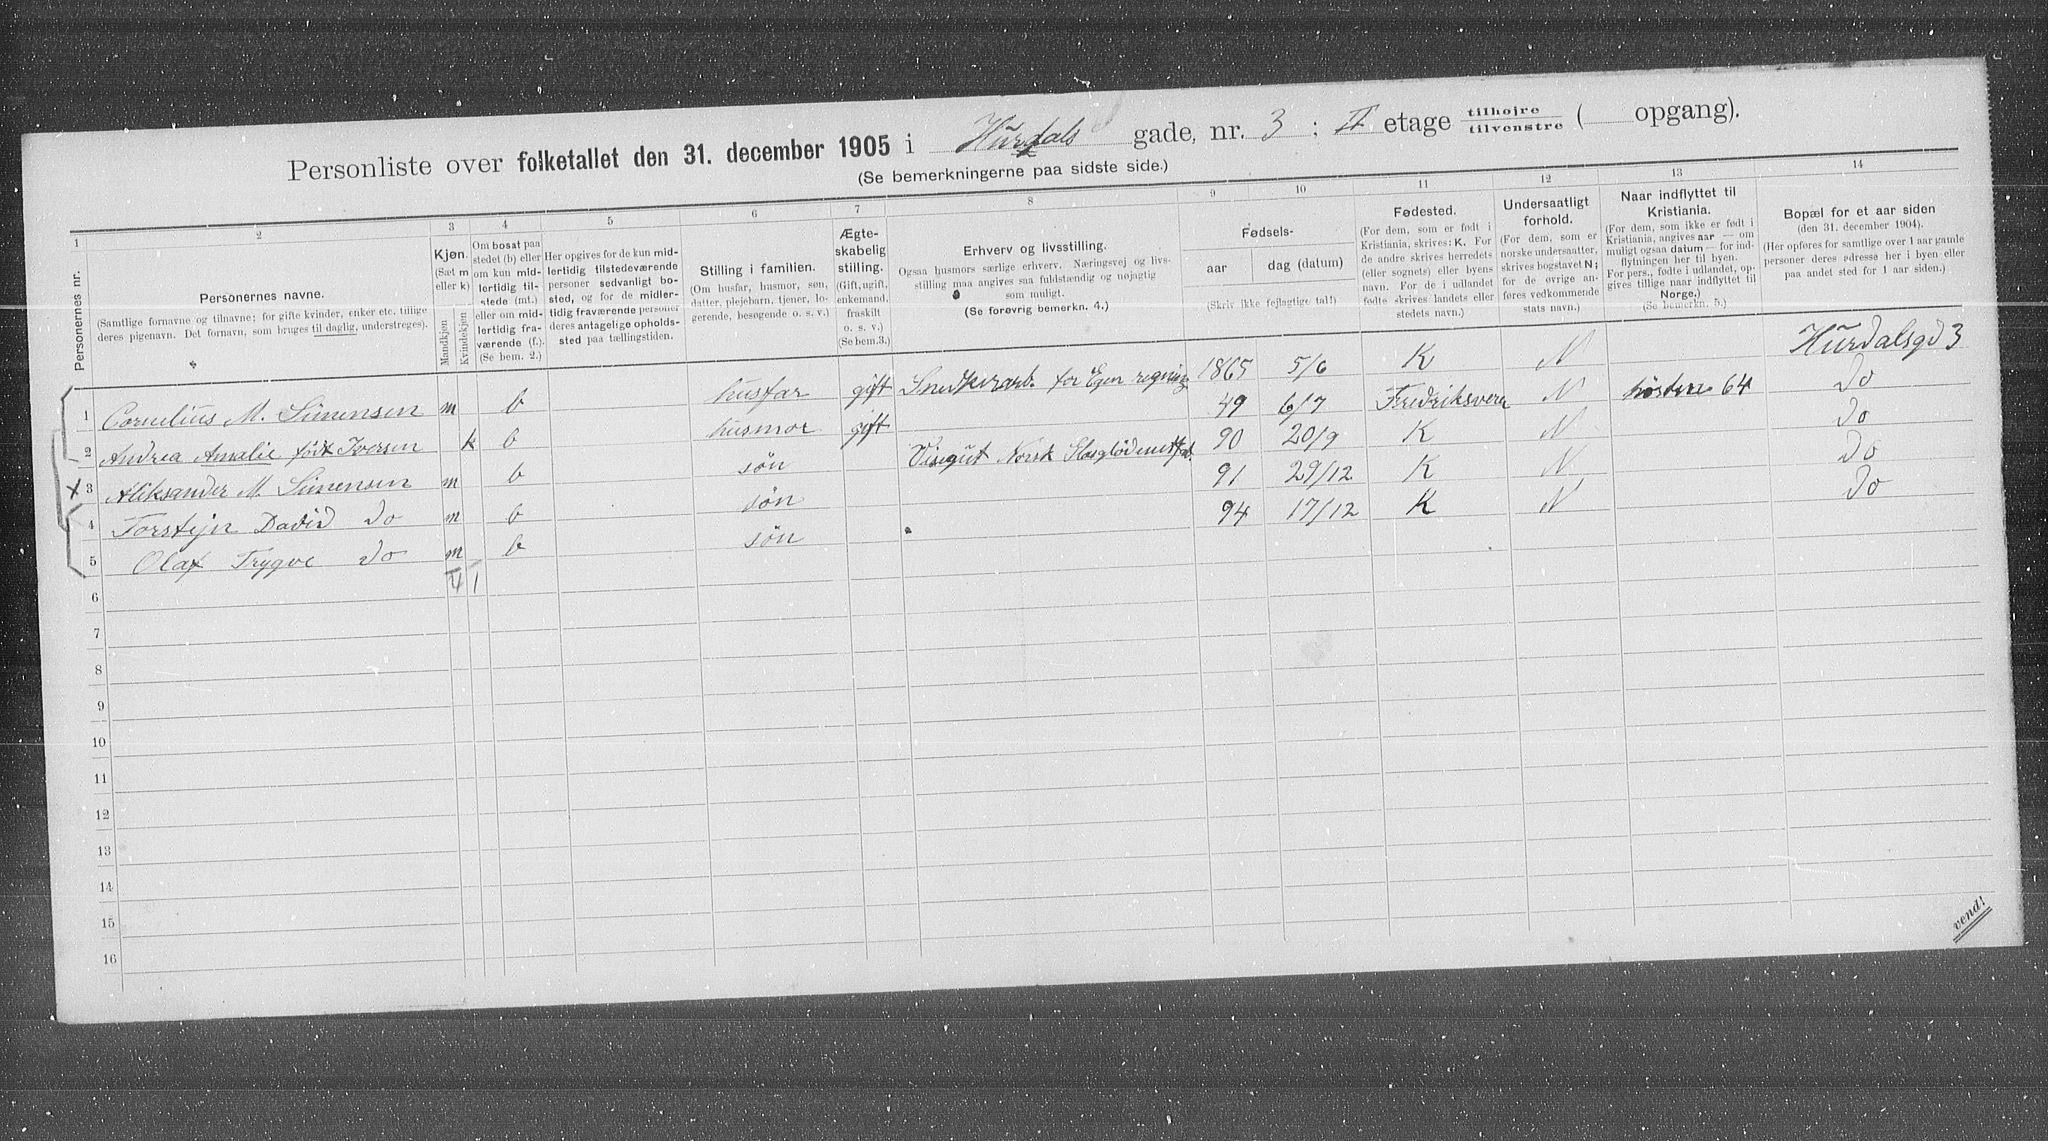 Personliste over folketallet den 31. december 1905 i Hurdals gade, nr. 3 ; II etage tilhøjre tilvenstre ( opgang).
(Se bemerkningerne paa sidste side.)
1 2 3 4 5 6 7 8 9 10 11 12 13 14
Personernes nr.
Personernes navne.
(Samtlige fornavne og tilnavne; for gifte kvinder, enker etc. tillige
deres pigenavn. Det fornavn, som bruges til daglig, understreges).
Kjøn.
(Sæt m
eller k)
Mandkjøn
Kvindekjøn
Om bosat paa
stedet (b) eller
om kun mid-
lertidig til-
stede (mt.)
eller om mid-
lertidig fra-
værende (f.).
(Se bem. 2.)
Her opgives for de kun mid-
lertidig tilstedeværende
personer sedvanligt bo-
sted, og for de midler-
tidig fraværende personer
deres antagelige opholds-
sted paa tællingstiden.
Stilling i familien.
(Om husfar, husmor, søn,
datter, plejebarn, tjener, lo-
gerende, besøgende o. s. v.)
Ægte-
skabelig
stilling.
(Gift, ugift,
enkemand,
fraskilt
o. s. v.)
(Se bem.3.)
Erhverv og livsstilling.
Ogsaa husmors særlige erhverv. Næringsvej og livs-
stilling maa angives saa fuldstændig og nøjagtig
som muligt.
(Se forøvrig bemerkn. 4.)
Fødsels-
aar
dag (datum)
(Skriv ikke fejlagtige tal!)
Fødested.
(For dem, som er født i
Kristiania, skrives: K. For
de andre skrives herredets
(eller sognets) eller byens
navn. For de i udlandet
fødte skrives landets eller
stedets navn.)
Undersaatligt
forhold.
(For dem, som er
norske undersaatter,
skrives bogstavet N;
for de øvrige an-
føres vedkommende
stats navn.)
Naar indflyttet til
Kristiania.
(For dem, som ikke er født i
Kristiania, angives aar — om
muligt ogsaa datum — for ind-
flytningen her til byen.
For pers., fødte i udlandet, op-
gives tillige naar indflyttet til
Norge.)
(Se bemerkn. 5.)
Bopæl for et aar siden
(den 31. december 1904).
(Her opføres for samtlige over 1 aar gamle
personer deres adresse her i byen eller
paa andet sted for 1 aar siden.)
1 Cornelius M. Simensen m b husfar gift Snedkerarb. for Egen regning 1865 5/6 K N Hurdalsgd 3
2 Andrea Amalie født Iversen k b husmor gift 49 6/7 Fredriksværn N høsten 64 Do
x 3 Aleksander M. Simensen m b søn Visergut Norsk 90 20/9 K N Do
4 Torstejn David Do m b søn 91 29/12 K N Do
5 Olaf Trygve Do m b søn 94 17/12 K N Do
4 1
6
7
8
9
10
11
12
13
14
15
16
vend!